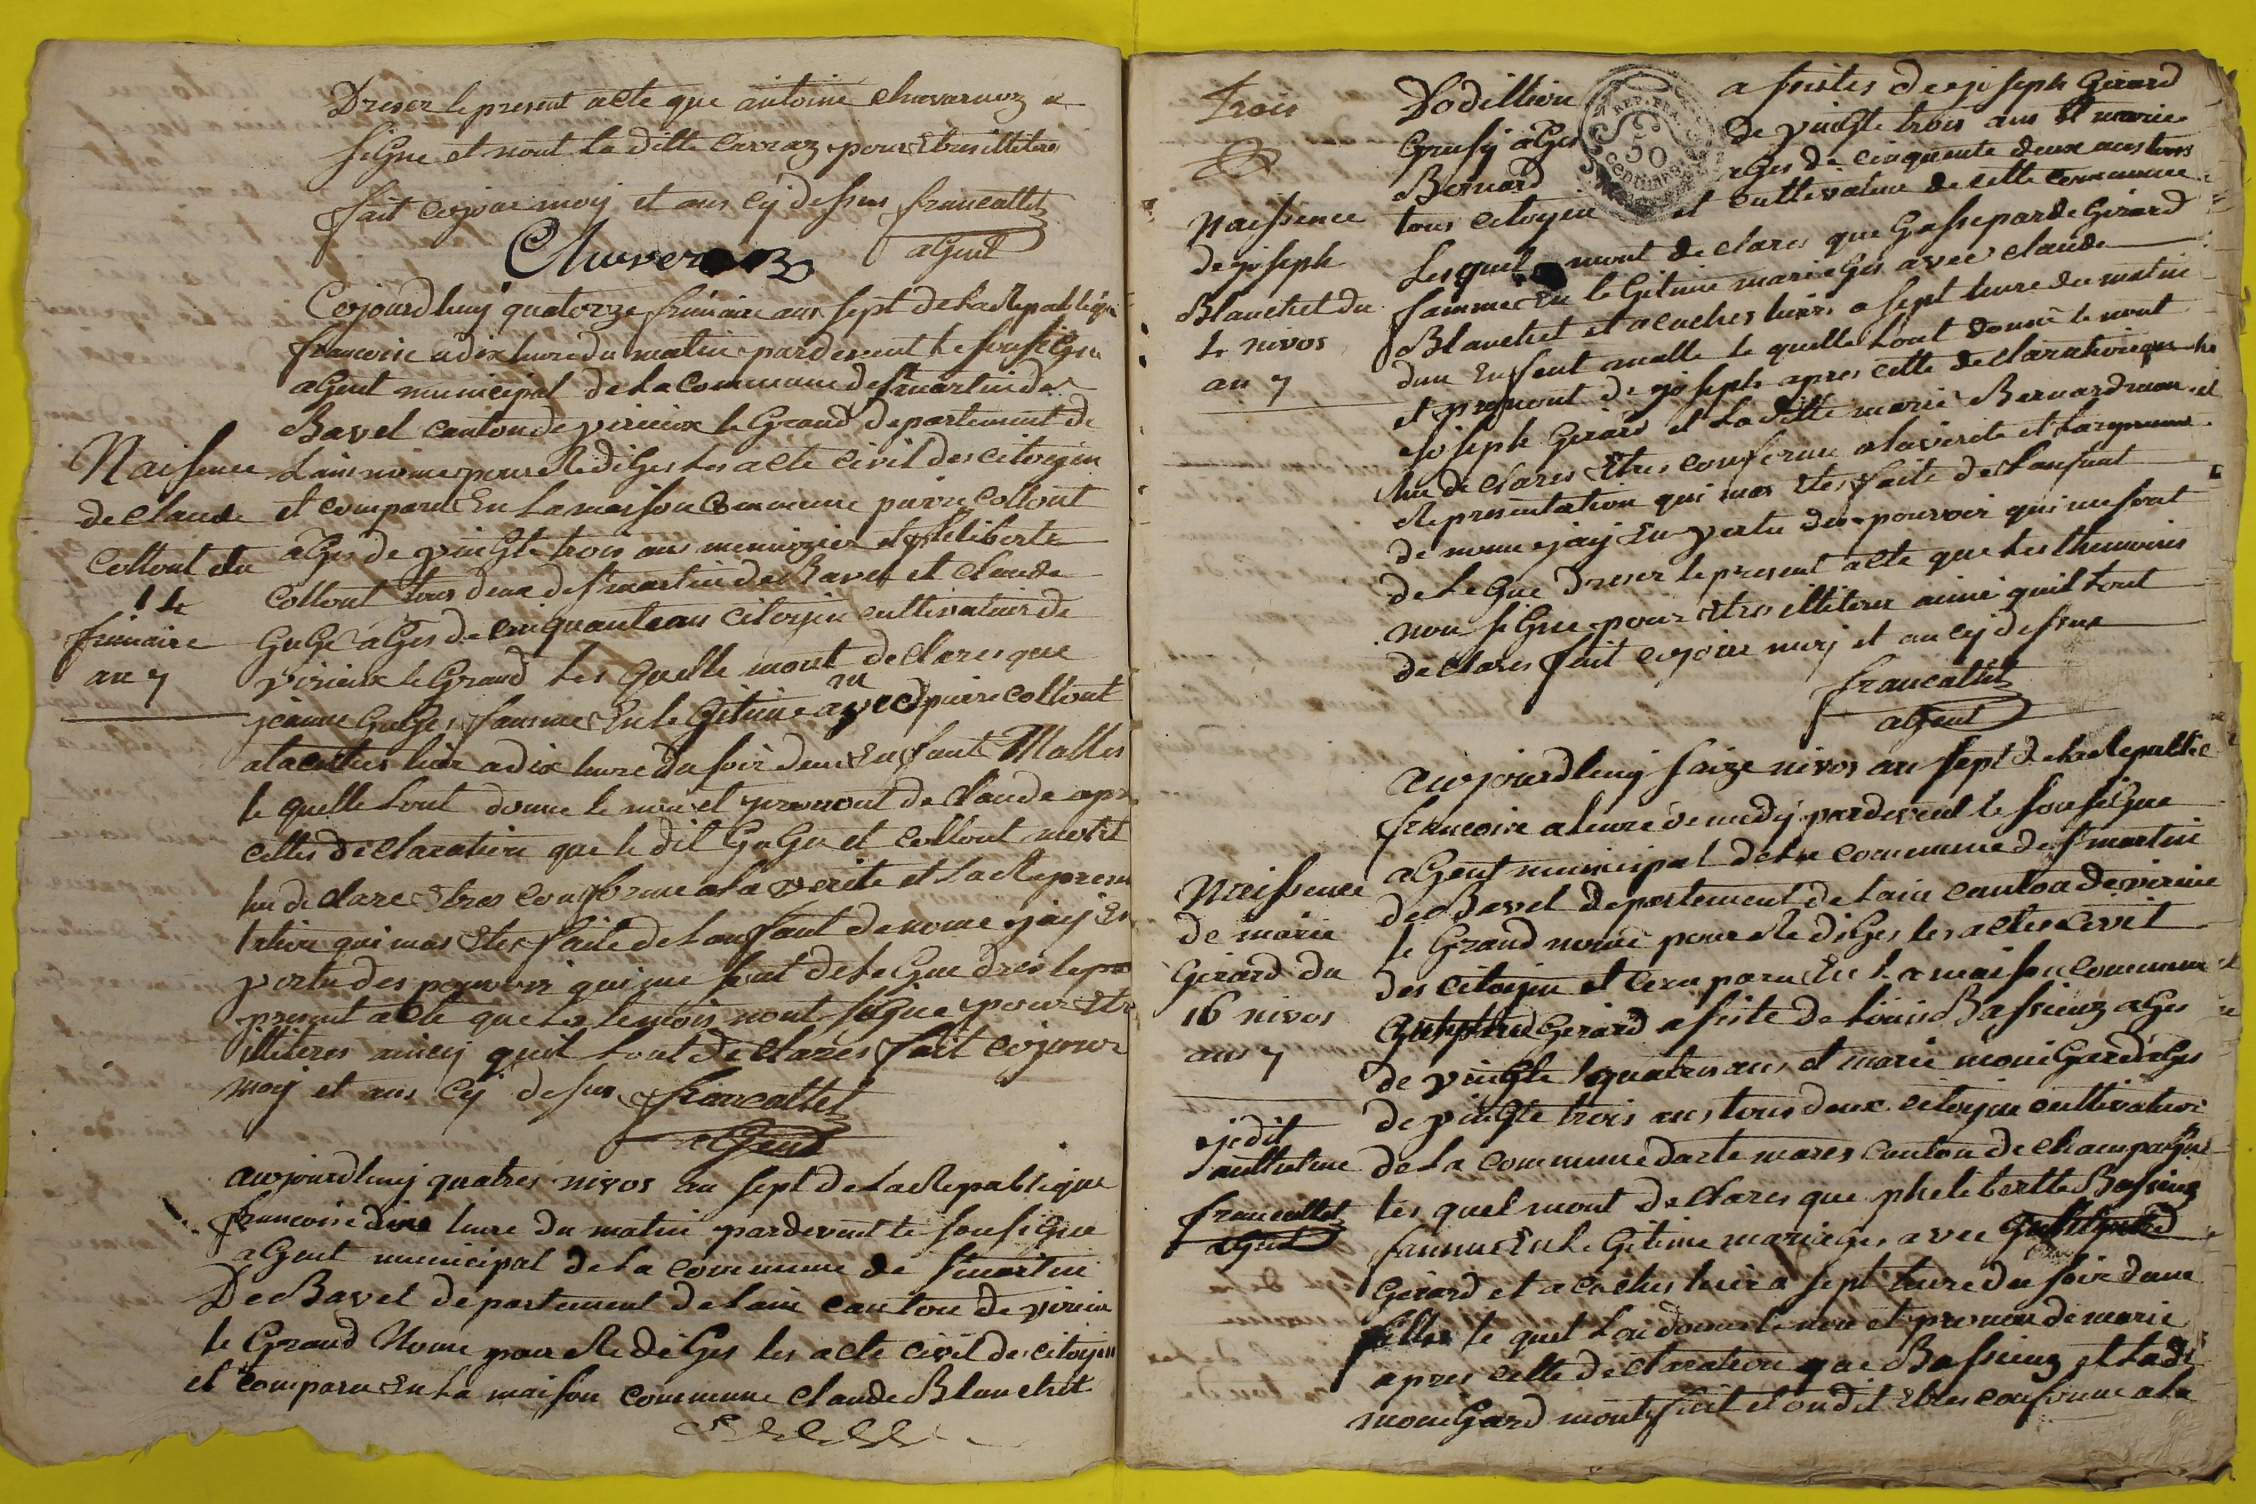 Dreser le present acte que antoine chavarnoz a
signe et nont la ditte carraz pour Etres illitere
fait cejour moy et ans cy desus francallet
agent
Cejourdhuy quatorze frimaire ans sept de la Republique
francoise a dix hure du matin pardevent le sousigne
agent municipal de la Commune de st martin de
Bavel canton de virieux le Grand departement de
Lain nome pour Rediges Les acte civil des citoyin
et comparu En La maison Commune pierre Collont
ages de vingte trois ans menuzier et philiberte
Collont tous deux de st martin de Bavel et Claude
Guge ages de cinquante ans citoyin cultivateur de
virieux le Grand Les quelle mont declares que
jeanne Guges famme En le Gitime avec pierre Collont
alacuthes hier a dix hure du soir dun Enfant Malles
le quelle Lont donne le nom et pronont de Claude apr
cettes declaration que le dit Guge et Collont mont
hu declare Etres conforme a la verite et La Represen
tation qui mas Etes faite de Lanfant de nome jay En
vertu des pouvoir qui me sont deleGue dres le pre
present acte que Les temois nont signe pour Etre
illiteres aincy quil Lont declares fait cejour
moy et ans cy desus francallet
agent
Naissence
de Claude
Collont du
14
frimaire
an 7
aujourdhuy quatres nivos an sept de La Republique
francoise dixe hure du matin pardevent le sousigne
agent municipal de La commune de st martin
De Bavel departement de Lain canton de virieu
le Grand Nome pour Rediges les acte civil des citoyin
et comparu En La maison commune Claude Blanchet
Trois
Naissence
de joseph
Blanchet du
4 nivos
an 7
Dodillion a sistes de joseph Girard
Grusy ages de vingte trois ans et marie
Bernard ages de cinquente deux ans tous
tous citoyin et cultivateur de cette commune
REP. FRA.
50
centimes
Lesquel mont declares que Gasseparde Girard
famme En le Gitime mariages avec claude
Blanchet et acuches hiers a sept hure du matin
dun Enfant malle le quelle Lont donné le nont
et pronont de joseph apres cette declaration que le
joseph Girard et La ditte marie Bernard mon
hu declares Etres conforme a la verite et La
Representation qui mas Etes faite de Lanfant
de nome jay En vertu des pouvoir qui me sont
de LeGue Dreser le present acte que Les themoins
non signe pour Etres illiteres aincі quil Lont
declares fait cejour moy et an cy desus
francallet
agent
aujourdhuy saize nivos an sept de La Republic
francoise a leure de midy pardevent le sousigne
agent municipal de La commune de st martin
de Bavel departement de Lain canton de virieu
le Grand nomé pour Rediges les actes civil
des citoyin et comparu En La maison commune
Girard a siste de Louis Bassieuz ages
de vingte quatres ans et marie moniGard ages
de vingte trois ans tous deux citoyin cultivateur
de La commune darte mares canton de champagne
les quel mont declares que phelibertte Bassieuz
famme En le Gitime mariages avec
Girard et acuches hier a sept hure du soir dune
filles le quel Lon donne le nom et pronon de marie
apres cette declaration que Bassieuz et La di
moniGard mont fait et ondit Etres conforme a la
Naissence
de marie
Girard du
16 nivos
ans 7
jedit
anthelme
francallet
agent